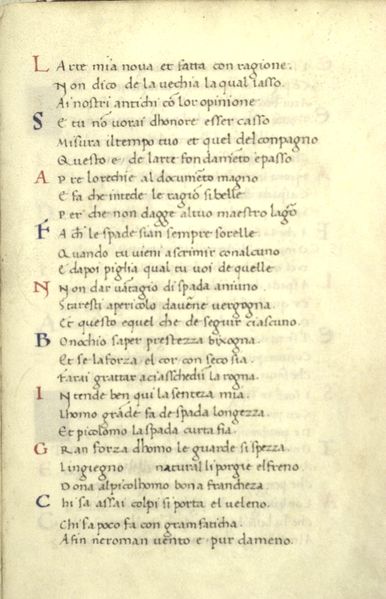 L Arte mia noua et fatta con ragione.
Non dico de la uechia la qual lasso.
Ai nostri antichi cõ lor opinione
S E tu nõ uorai dhonore esser casso
Misura il tempo tuo et quel del conpagno
Questo e de larte fondamẽto e passo
A P re lorechie al documẽto magno
E fa che intẽde le ragiõ si belle
Per che non dagge al tuo maestro lagõ
F A ch̃ le spade sian sempre sorelle
Quando tu uieni a scrimir con alcuno
E da poi piglia qual tu uoi de quelle
N N on dar uãtagio di spada a niuno
Staresti a pericolo dauẽne uergogna.
Et questo e quel che de seguir ciascuno.
B O nochio saper prestezza bixogna.
Et se la forza el cor con seco sia.
Farai grattar a ciaschedũ la rogna.
I N tende ben qui la sentẽza mia.
Lhomo grãde fa de spada longezza.
Et picolomo la spada curta fia.
G R an forza dhomo le guarde si spezza.
Lingiegno natural li porgie el freno
Dona al picolhomo bona francheza
C H i sa assai colpi si porta el ueleno.
Chi sa poco fa con gram faticha.
A fin ne roman uento e pur dameno.